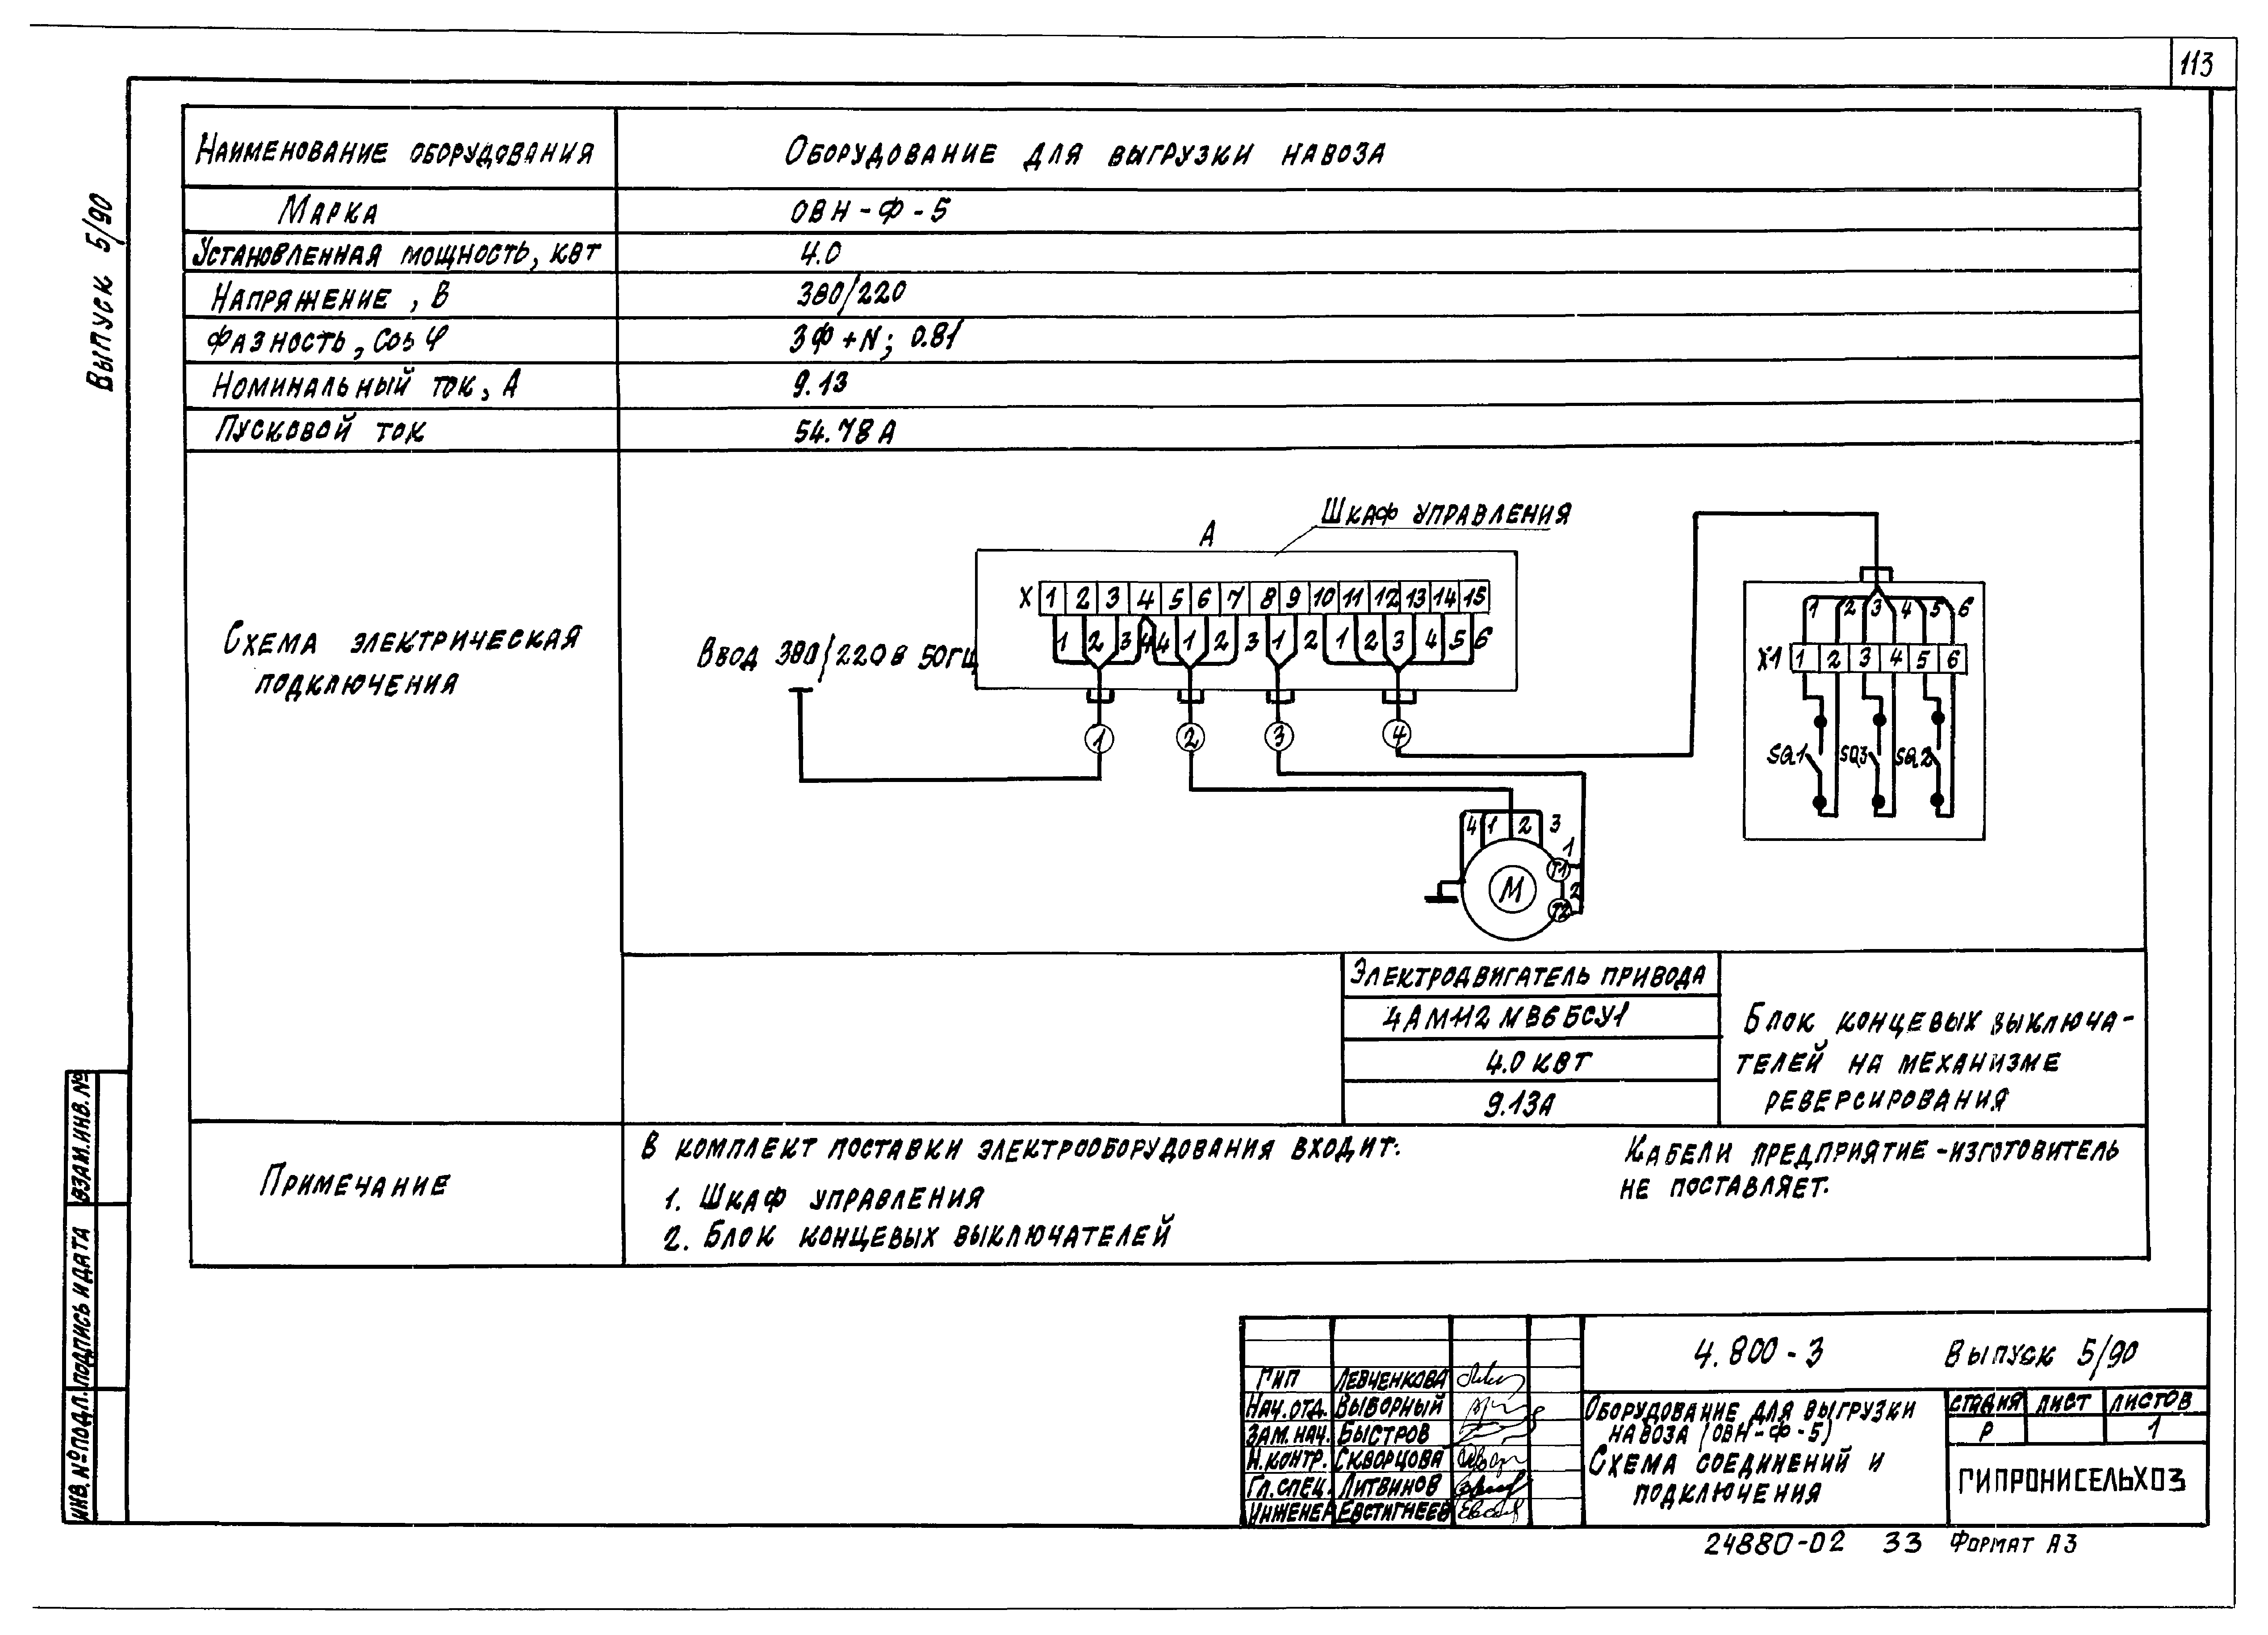 113
Выпуск 5/90
Наименование оборудования
Оборудование для выгрузки навоза
Марка
ОВН-Ф-5
Установленная мощность, кВт
4.0
Напряжение, В
380/220
Фазность, Cos φ
3Ф+N; 0.81
Номинальный ток, А
9.13
Пусковой ток
54.78 А
Схема электрическая
подключения
Шкаф управления
А
X 1 2 3 4 5 6 7 8 9 10 11 12 13 14 15
1 2 3 4 4 1 2 3 1 2 1 2 3 4 5 6
Ввод 380/220В 50Гц
1 2 3 4
1 2 3 4 5 6
X1 1 2 3 4 5 6
SQ1 SQ3 SQ2
4 1 2 3
1
Т1
М
2
Т2
Электродвигатель привода
4АМ112МВ6БСУ1
4.0 кВт
9.13А
Блок концевых выключа-
телей на механизме
реверсирования
Примечание
В комплект поставки электрооборудования входит:
1. Шкаф управления
2. Блок концевых выключателей
Кабели предприятие-изготовитель
не поставляет.
Взам.инв.№
Подпись и дата
Инв.№ подл.
4.800-3 Выпуск 5/90
Гип Левченкова
Нач.отд. Выборный
Зам.нач. Быстров
Н.контр. Скворцова
Гл.спец. Литвинов
Инженер Евстигнеев
Оборудование для выгрузки
навоза (ОВН-Ф-5)
Схема соединений и
подключения
Стадия Лист Листов
Р 1
ГИПРОНИСЕЛЬХОЗ
24880-02 33 Формат А3